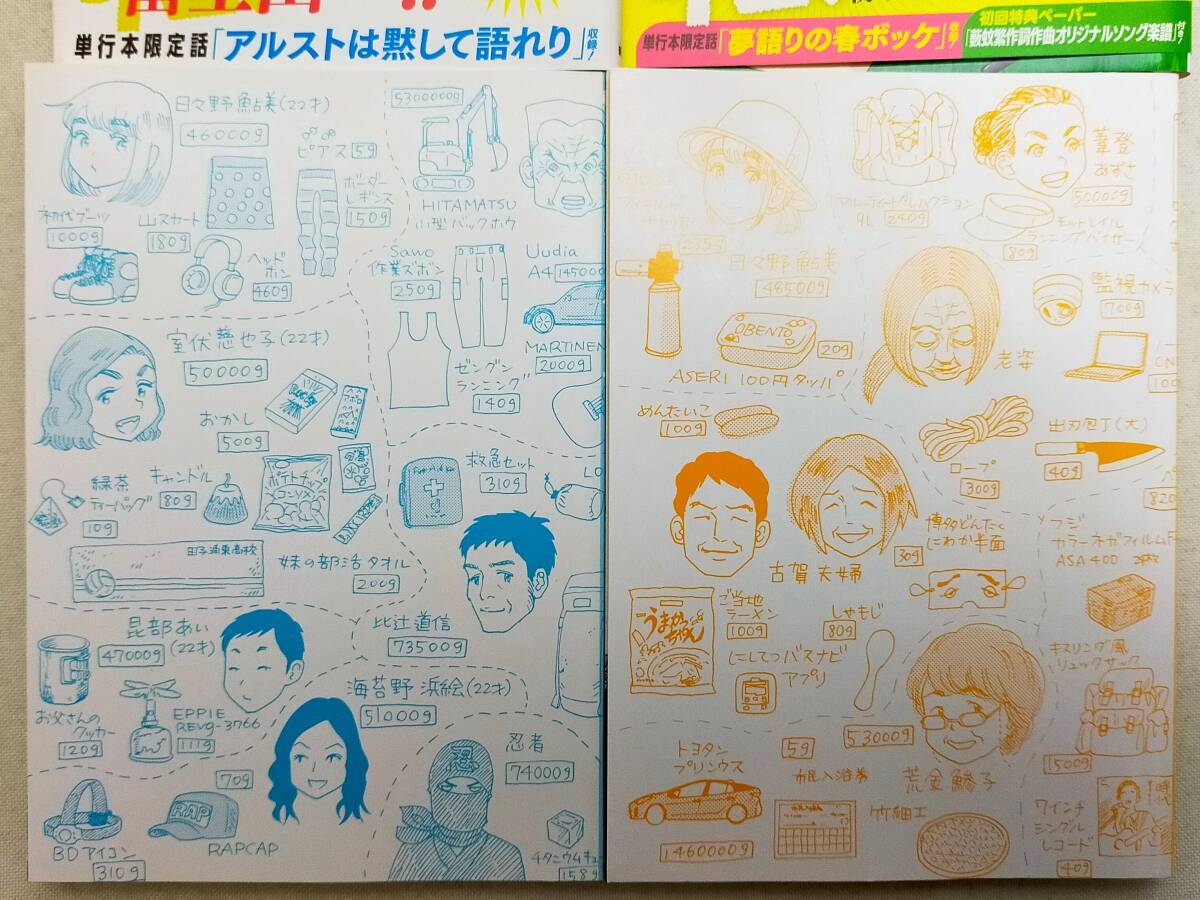 富士山
!!
単行本限定話「アルストは黙して語れり」収録!
日々野鮎美(22才)
46000g
ピアス 5g
ボーダーレギンス
150g
初代ブーツ
1000g
山スカート
180g
ヘッドホン
460g
5300000g
HITAMATSU
小型バックホウ
Sawo
作業ズボン
250g
Uudia
A4
145000
ゼングン
ランニング
140g
MARTINEN
2000g
室伏慈也子(22才)
50000g
おかし
500g
緑茶
ティーバッグ
10g
キャンドル
80g
ポテトチップ
コンソメ
救急セット
310g
LO
田子浦東高校
妹の部活タオル
200g
比辻道信
73500g
昆部あい
(22才)
47000g
お父さんの
クッカー
120g
EPPIE
REVG-3766
111g
海苔野 浜絵(22才)
51000g
忍者
74000g
忍
BDアイコン
310g
70g
RAP
RAPCAP
チタニウムキュ
158g
単行本限定話「夢語りの春ボッケ」収録!
初回特典ペーパー
「薮蚊繁作詞作曲オリジナルソング楽譜」付き!
240g
葦登
あずさ
50000g
モットレイル
ランニングバイザー
80g
日々野鮎美
48500g
OBENTO
20g
ASERI 100円タッパ
老婆
監視カメラ
700g
めんたいこ
100g
ロープ
300g
出刃包丁(大)
40g
820
古賀夫婦
博多どんたく
にわか半面
30g
フジ
カラーネガフィルムF
ASA400
うまかっちゃん
ご当地
ラーメン
100g
しゃもじ
80g
にしてつバスナビ
アプリ
キスリング風
リュックサック
1500g
53000g
荒金鱒子
トヨタン
プリンウス
1460000g
5g
市民入浴券
竹細工
時代
7インチ
シングル
レコード
40g